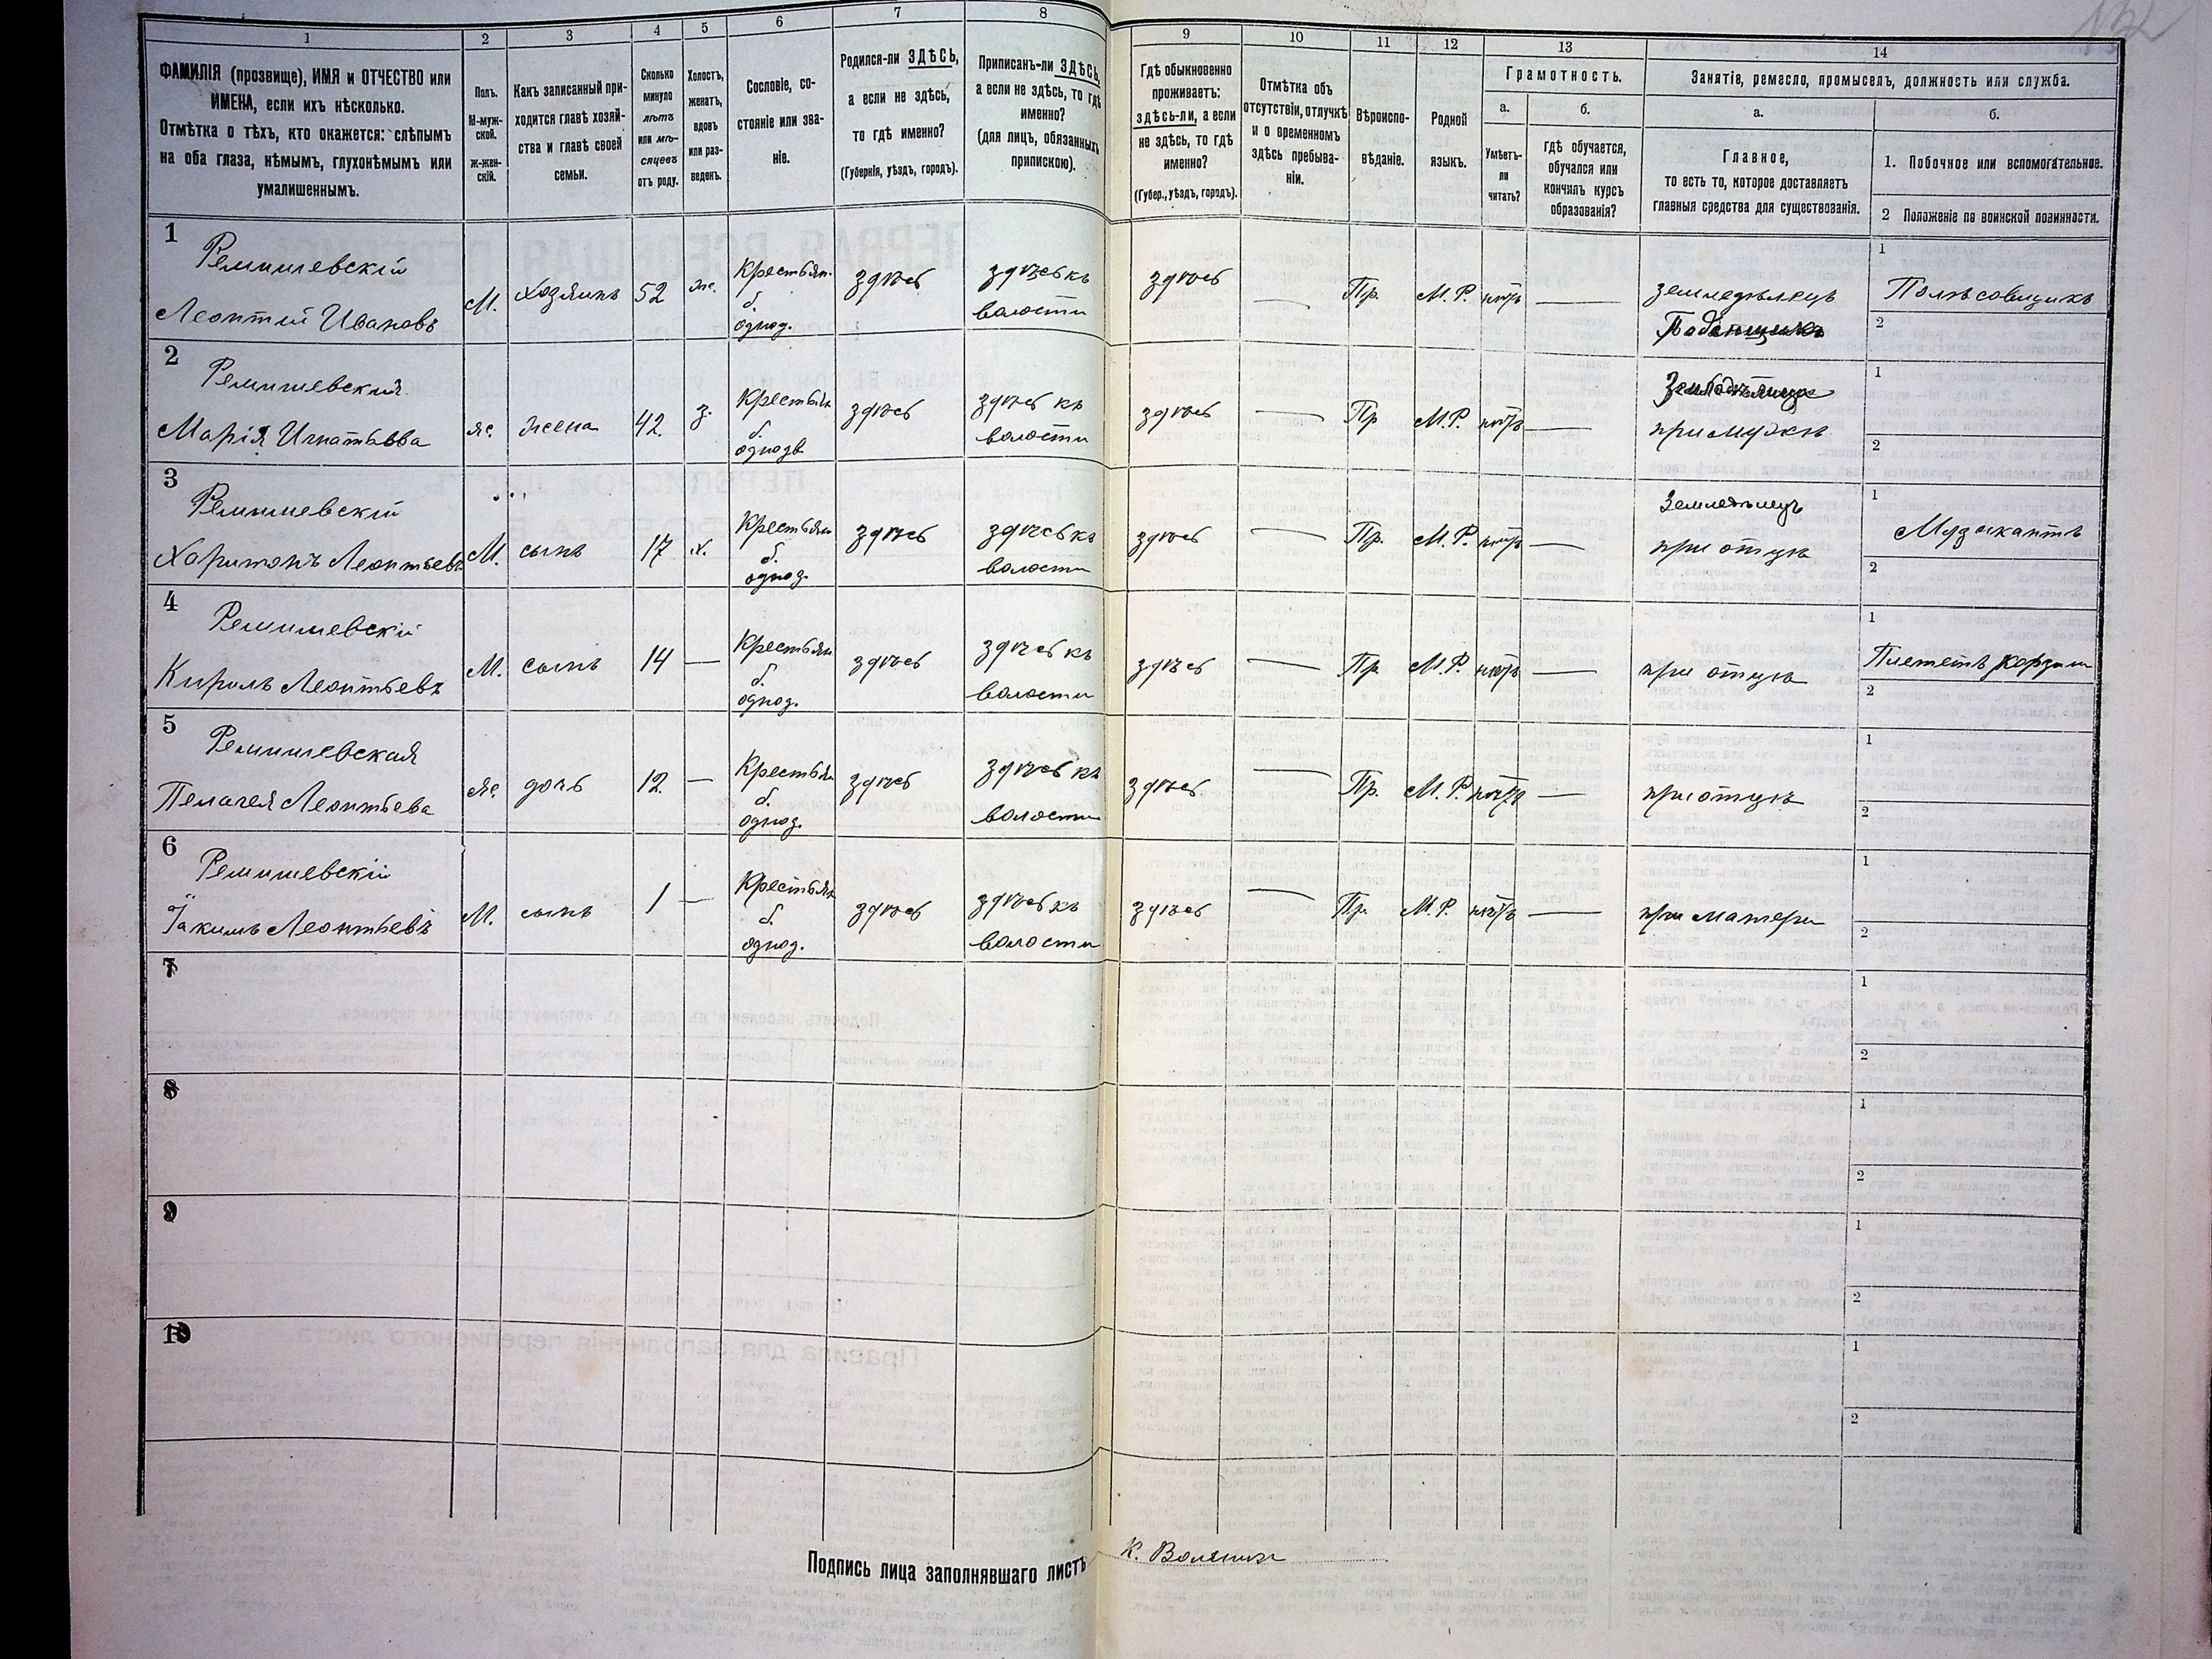 132
1 2 3 4 5 6 7 8 9 10 11 12 13 14
ФАМИЛІЯ (прозвище), ИМЯ и ОТЧЕСТВО или
ИМЕНА, если ихъ нѣсколько.
Отмѣтка о тѣхъ, кто окажется: слѣпымъ
на оба глаза, нѣмымъ, глухонѣмымъ или
умалишеннымъ.
Полъ.
М-муж-
ской.
Ж-жен-
скій.
Какъ записанный при-
ходится главѣ хозяй-
ства и главѣ своей
семьи.
Сколько
минуло
лѣтъ
или мѣ-
сяцевъ
отъ роду.
Холостъ,
женатъ,
вдовъ
или раз-
веденъ.
Сословіе, со-
стояніе или зва-
ніе.
Родился-ли ЗДѢСЬ,
а если не здѣсь,
то гдѣ именно?
(Губернія, уѣздъ, городъ).
Приписанъ-ли ЗДѢСЬ,
а если не здѣсь, то гдѣ
именно?
(для лицъ, обязанныхъ
припискою).
Гдѣ обыкновенно
проживаетъ:
здѣсь-ли, а если
не здѣсь, то гдѣ
именно?
(Губер., уѣздъ, городъ).
Отмѣтка объ
отсутствіи, отлучкѣ
и о временномъ
здѣсь пребыва-
ніи.
Вѣроиспо-
вѣданіе.
Родной
языкъ.
Грамотность.
а.
Умѣетъ-
ли
читать?
б.
гдѣ обучается,
обучался или
кончилъ курсъ
образованія?
Занятіе, ремесло, промыселъ, должность или служба.
а.
Главное,
то есть то, которое доставляетъ
главныя средства для существованія.
б.
1. Побочное или вспомогательное.
2 Положеніе по воинской повинности.
1
Ремишевскій
Леонтій Ивановъ
М. хозяинъ 52 ж.
Крестьян.
б.
однод.
здѣсь
здѣсь къ
волости
здѣсь — Пр. М. Р. нѣтъ —
земледѣлецъ
1
Полѣсовщикъ
2
2
Ремишевская
Марія Игнатьева
ж. жена 42. з.
Крестьян
б.
однодв
здѣсь
здѣсь къ
волости
здѣсь — Пр М. Р. нѣтъ —
при мужѣ
1
2
3
Ремишевскій
Харитонъ Леонтьевъ
М. сынъ 17 х.
Крестьян
б.
однод.
здѣсь
здѣсь къ
волости
здѣсь — Пр. М. Р. нѣтъ —
Земледѣлецъ
при отцѣ
1
Музыкантъ
2
4
Ремишевскій
Киролъ Леонтьевъ
М. сынъ 14 —
Крестьян
б.
однод.
здѣсь
здѣсь къ
волости
здѣсь — Пр. М. Р. нѣтъ —
при отцѣ
1
Плететъ корзины
2
5
Ремишевская
Пелагея Леонтьева
ж. дочь 12. —
Крестьян
б.
однод.
здѣсь
здѣсь къ
волости
здѣсь — Пр. М. Р. нѣтъ —
при отцѣ
1
2
6
Ремишевскій
Іакимъ Леонтьевъ
М. сынъ 1 —
Крестьян
б.
однод.
здѣсь
здѣсь къ
волости
здѣсь — Пр. М. Р. нѣтъ —
при матери
1
2
7
1
2
8
1
2
9
1
2
10
1
2
Подпись лица заполнявшаго листъ К.